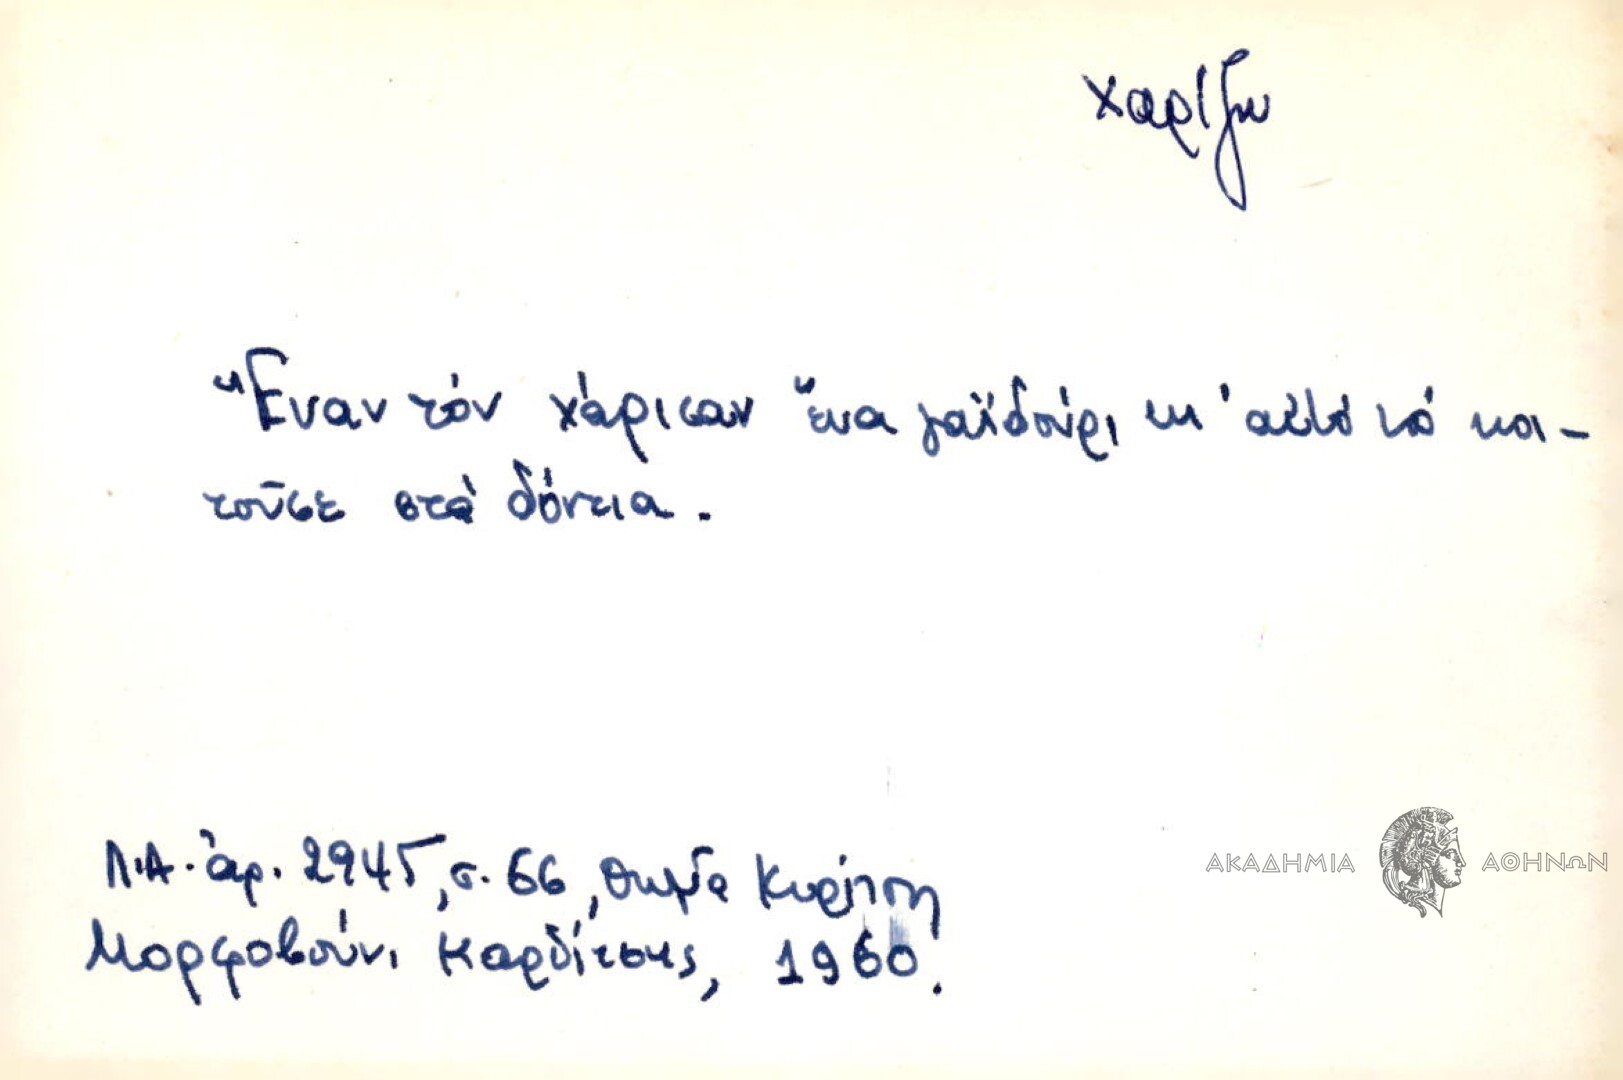 χαρίζω
Ἕναν τόν χάρισαν ἕνα γαϊδούρι κι' αὐτό τό κοι-
τοῦσε στά δόντια.
Λ.Α. ἀρ. 2945, σ. 66, Θωμᾶ
Μορφοβούνι Καρδίτσης, 1960.
ΑΚΑΔΗΜΙΑ ΑΘΗΝΩΝ